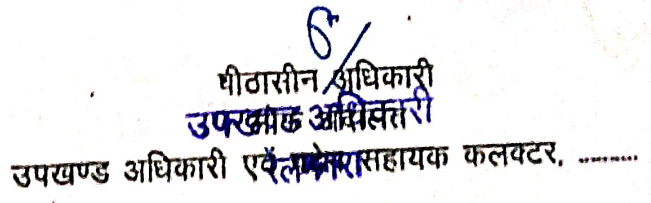 पीठासीन अधिकारी
उपखण्ड अधिकारी
उपखण्ड अधिकारी एवं सहायक कलक्टर, .........